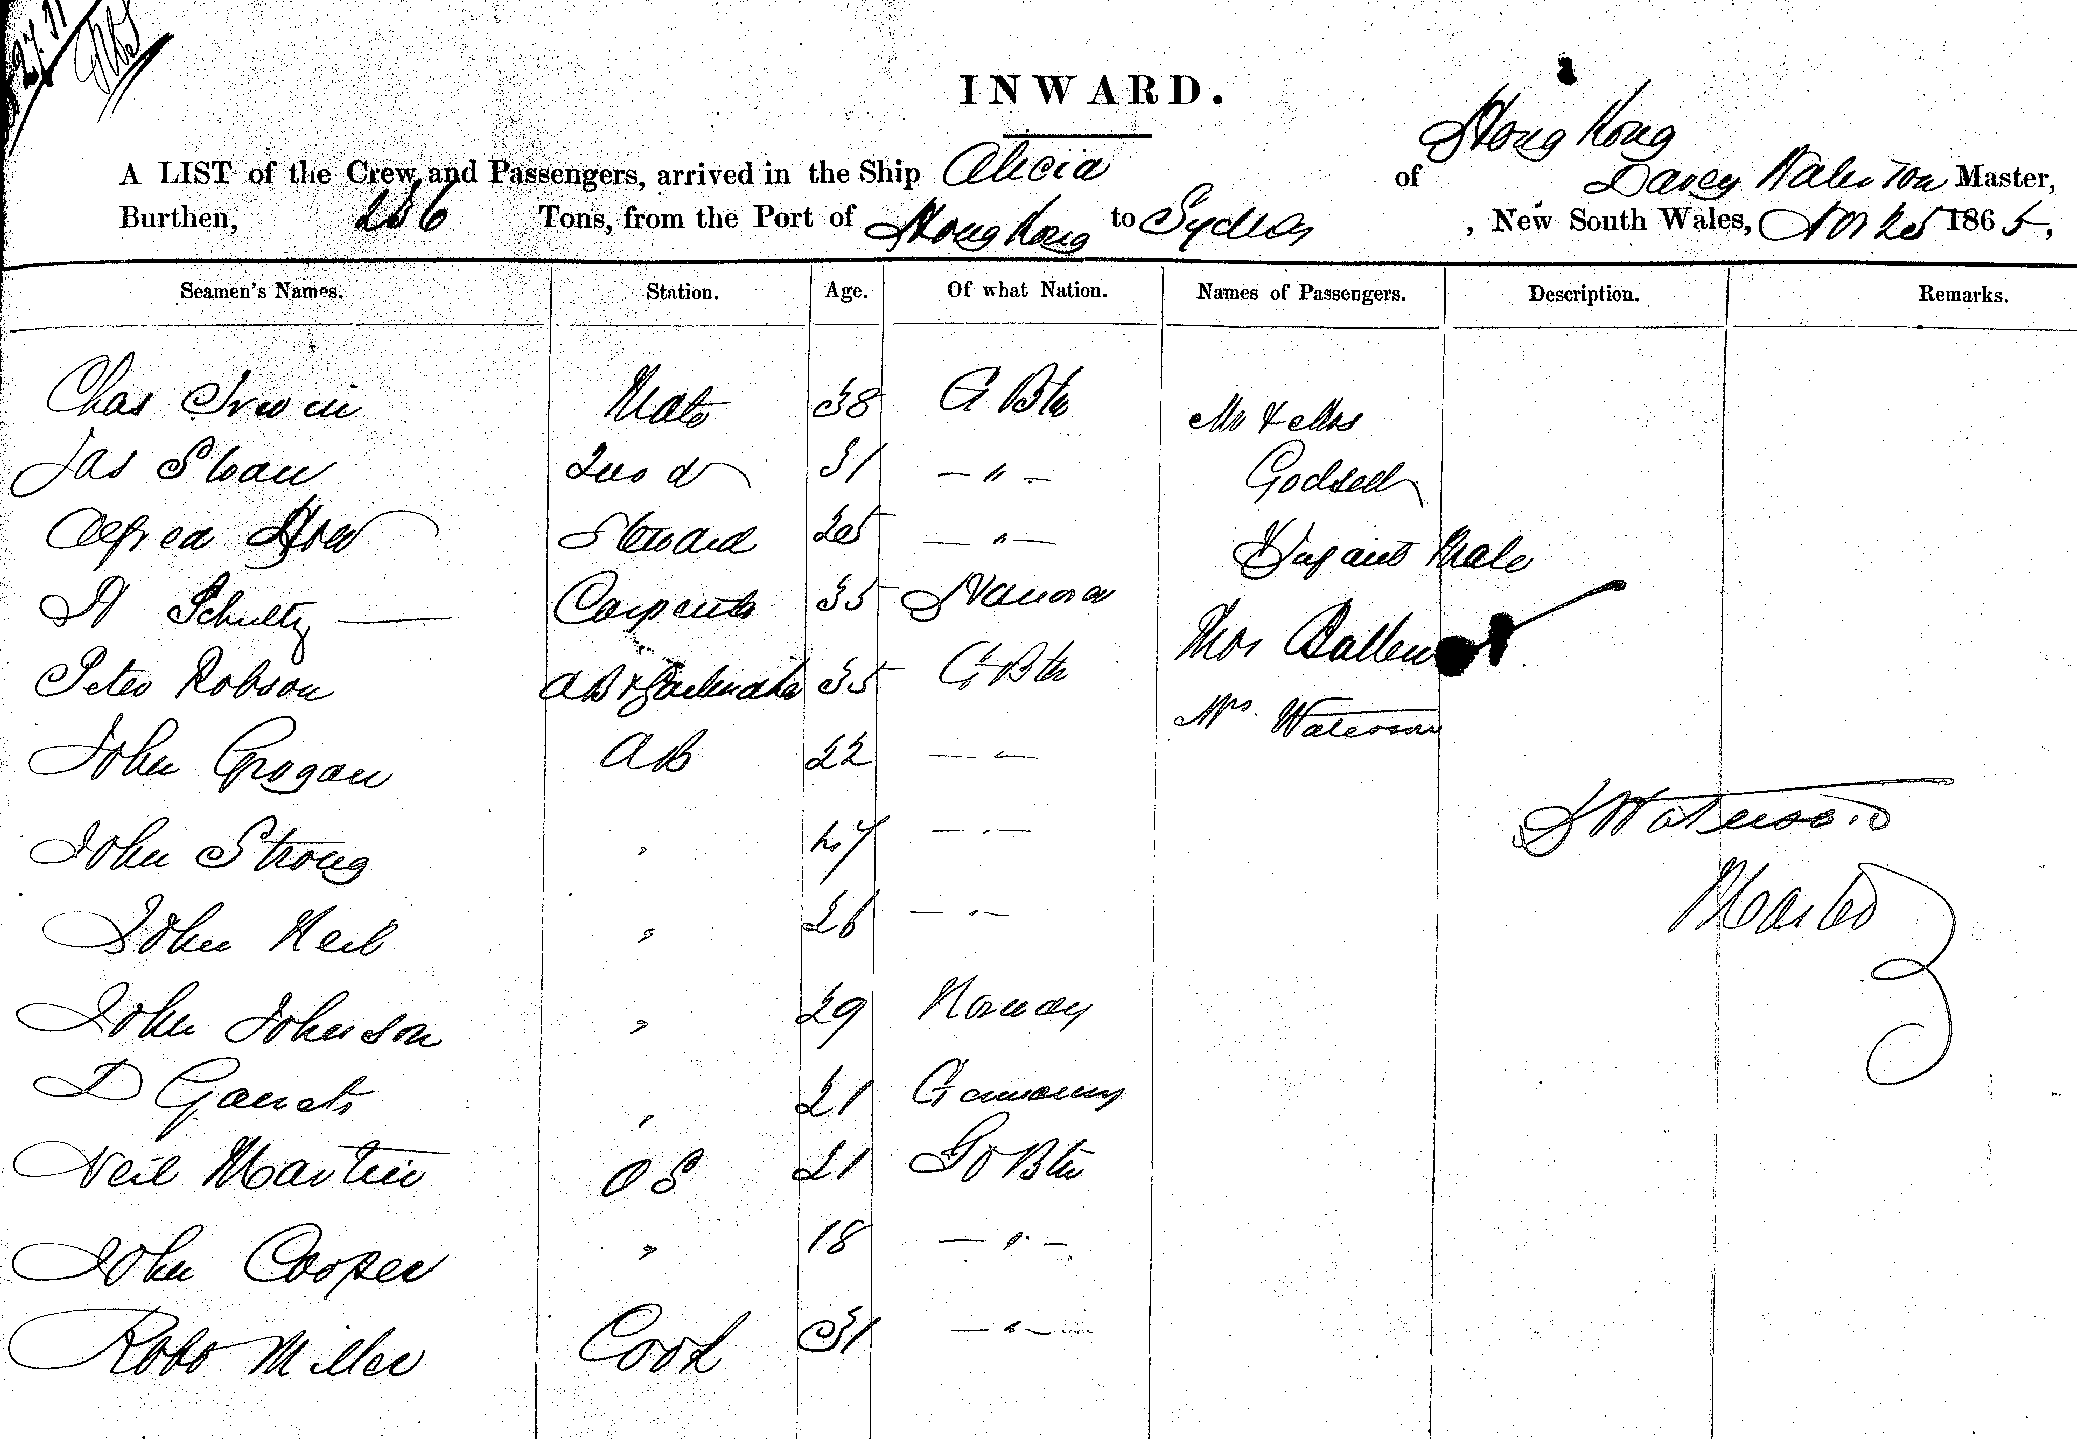 27.11
INWARD.
Hong Kong
A LIST of the Crew and Passengers, arrived in the Ship Alicia of Davey Waterson Master,
Burthen, 256 Tons, from the Port of Hong Kong to Sydney , New South Wales, Nov 25 1865,
Seamen's Names. Station. Age. Of what Nation. Names of Passengers. Description. Remarks.
Chas Irwin Mate 38 G Btn Mr & Mrs
Jas Sloan 2nd 31 — " — Godsell
Alfred Steward 25 — " — Infant Male
H Schultz — Carpenter 35 Hanover Thos Ballen
Peter Robson AB & Sailmaker 35 G Btn Mrs. Waterson
John Grogan AB 22 — " —
John Strong " 27 — " — D Waterson
John Neil " 26 — " — Master
John Johnson " 29 Norway
D " 21 Germany
Neil Martin OS 21 Gr Btn
John Cooper " 18 — " —
Robt Miller Cook 31 — " —